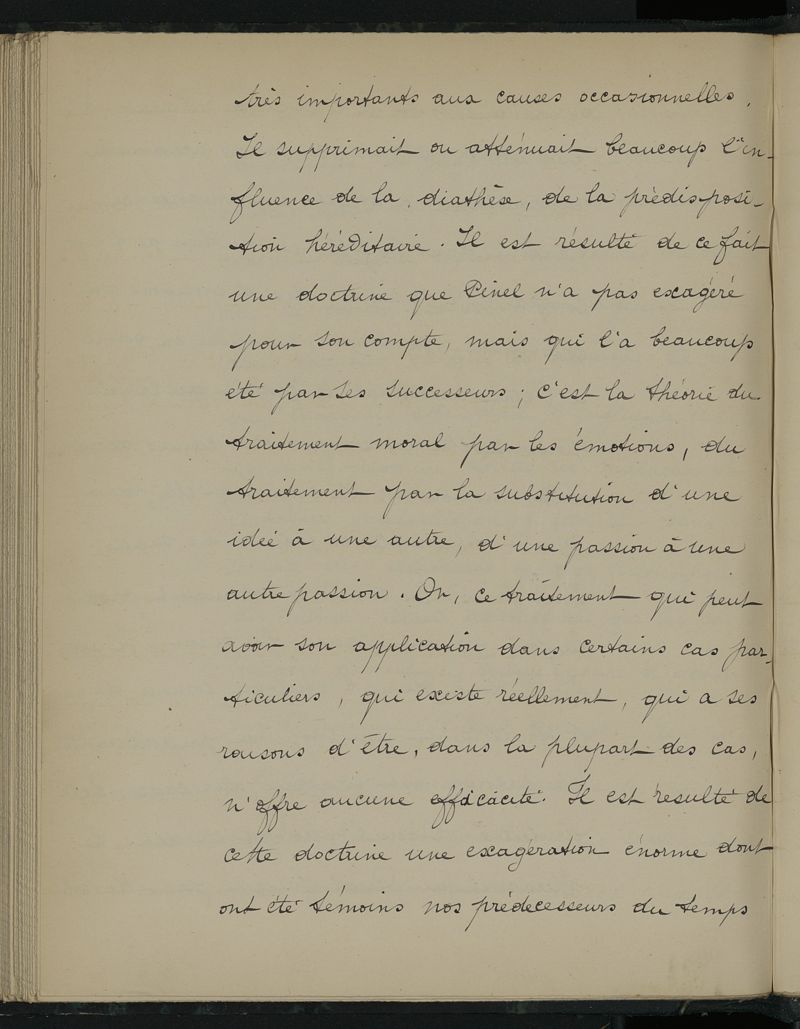 très importants aux causes occasionnelles.
Il supprimait ou atténuait beaucoup l'in-
fluence de la diathèse, de la prédisposi-
tion héréditaire. Il est résulté de ce fait
une doctrine que Pinel n'a pas exagéré
pour son compte, mais qui l'a beaucoup
été par ses successeurs ; c'est la théorie du
traitement moral par les émotions, du
traitement par la substitution d'une
idée à une autre, d'une passion à une
autre passion. Or, ce traitement qui peut
avoir son application dans certains cas par-
ticuliers, qui existe réellement, qui a ses
raisons d'être, dans la plupart des cas,
n'offre aucune efficacité. Il est résulté de
cette doctrine une exagération énorme dont
ont été témoins nos prédecesseurs du temps